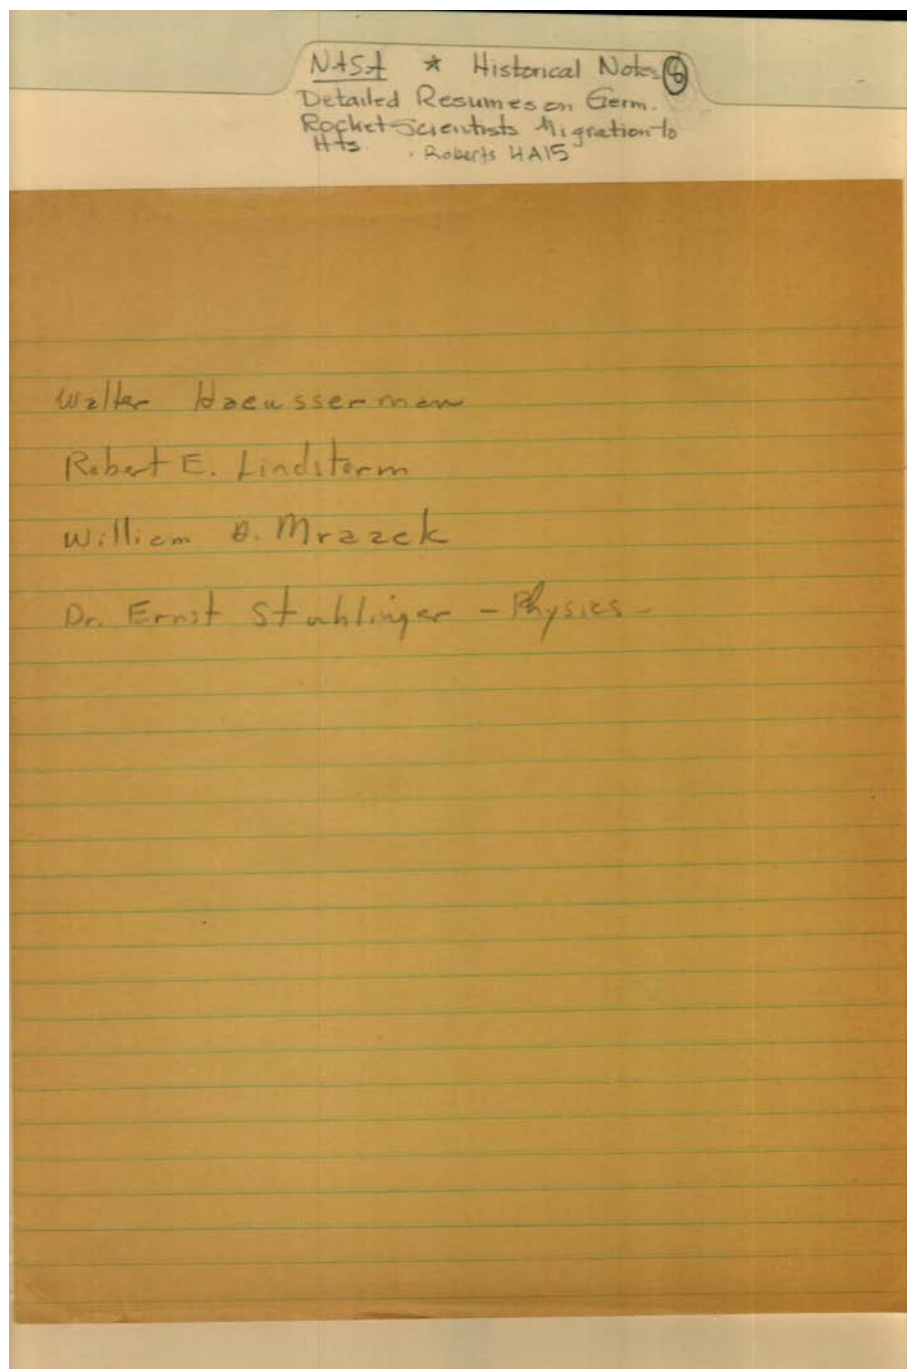 NASA * Historical Notes 6
Detailed Resumes on Germ.
Rocket Scientists Migration to
Hts. Roberts HA15
Walter Haeusserman
Robert E. Lindstorm
William A. Mrazek
Dr. Ernst Stuhlinger - Physics -